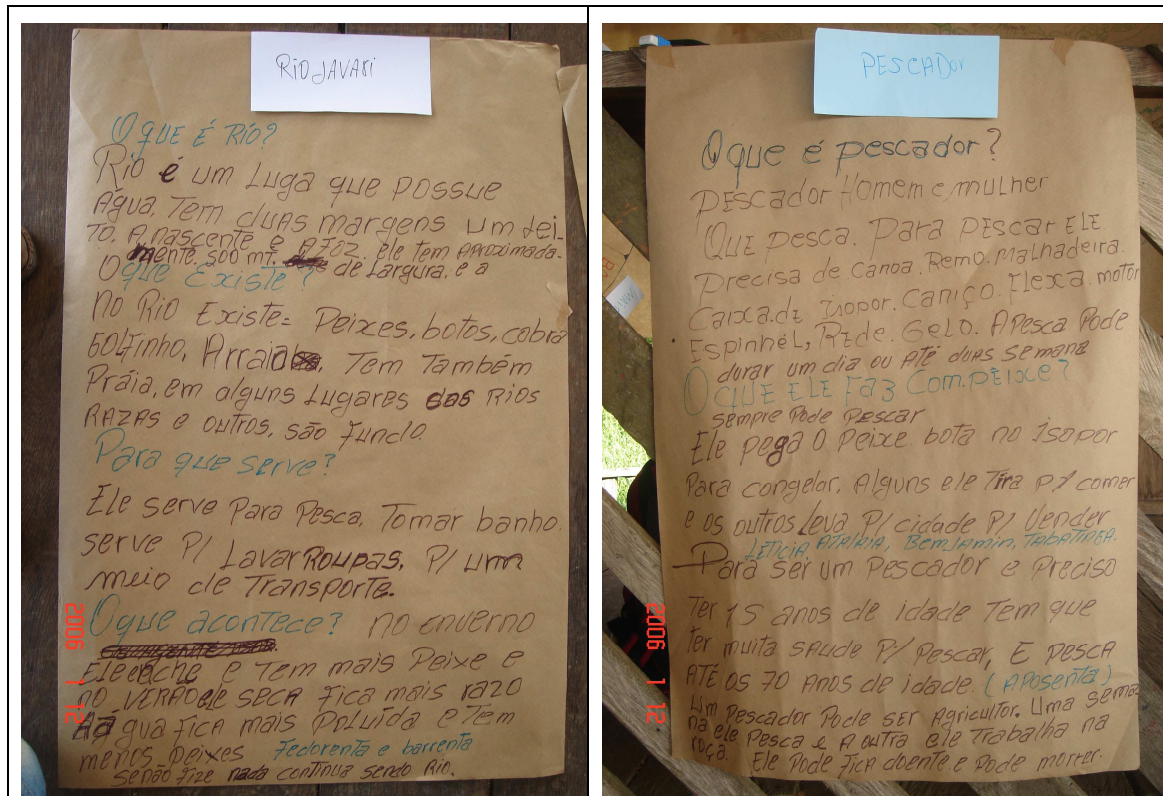 RIO JAVARI
O QUE É RIO?
Rio é um Luga que possue
Água. Tem duas margens um Lei-
TO. A nascente e A FOZ. ele tem Aproximada-
mente 500 mt. de Largura. e a
O que Existe?
No Rio Existe= Peixes, botos, cobra
golfinho, Arraia. Tem Também
Práia, em alguns Lugares das Rios
RAZAS e outros, são fundo.
Para que serve?
Ele serve Para Pesca. Tomar banho.
serve P/ Lavar ROUPAS. P/ um
meio de Transporte.
O que acontece? no enverno
Ele enche e Tem mais Peixe e
no VERÃO ele seca fica mais razo
A água fica mais Poluída e Tem
menos peixes Fedorenta e barrenta
senão fize nada continua sendo Rio.
2006 1 12
PESCADOR
O que é pescador?
PESCADOR Homem e mulher
QUE pesca. Para PESCAR ELE
Precisa de canoa. Remo. malhadeira.
Caixa.de Isopor. caniço. Flexa. motor
Espinhél, Rede. Gelo. A Pesca Pode
durar um dia ou Até duas semana
O QUE ELE Faz Com.peixe?
sempre Pode Pescar
Ele pega O Peixe bota no Isopor
Para congelar, Alguns ele Tira P/ comer
e os outros Leva P/ cidade P/ Vender
LETICIA, ATALAIA, BemJamin, TABATINGA.
Para ser um Pescador e Preciso
Ter 15 anos de idade Tem que
Ter muita saude P/ Pescar, E pesca
ATÉ os 70 Anos de idade. (APosenta)
um Pescador Pode SER Agricultor. Uma sema
na ele Pesca e A outra ele Trabalha na
roça. Ele Pode Fica doente e Pode morrer.
2006 1 12